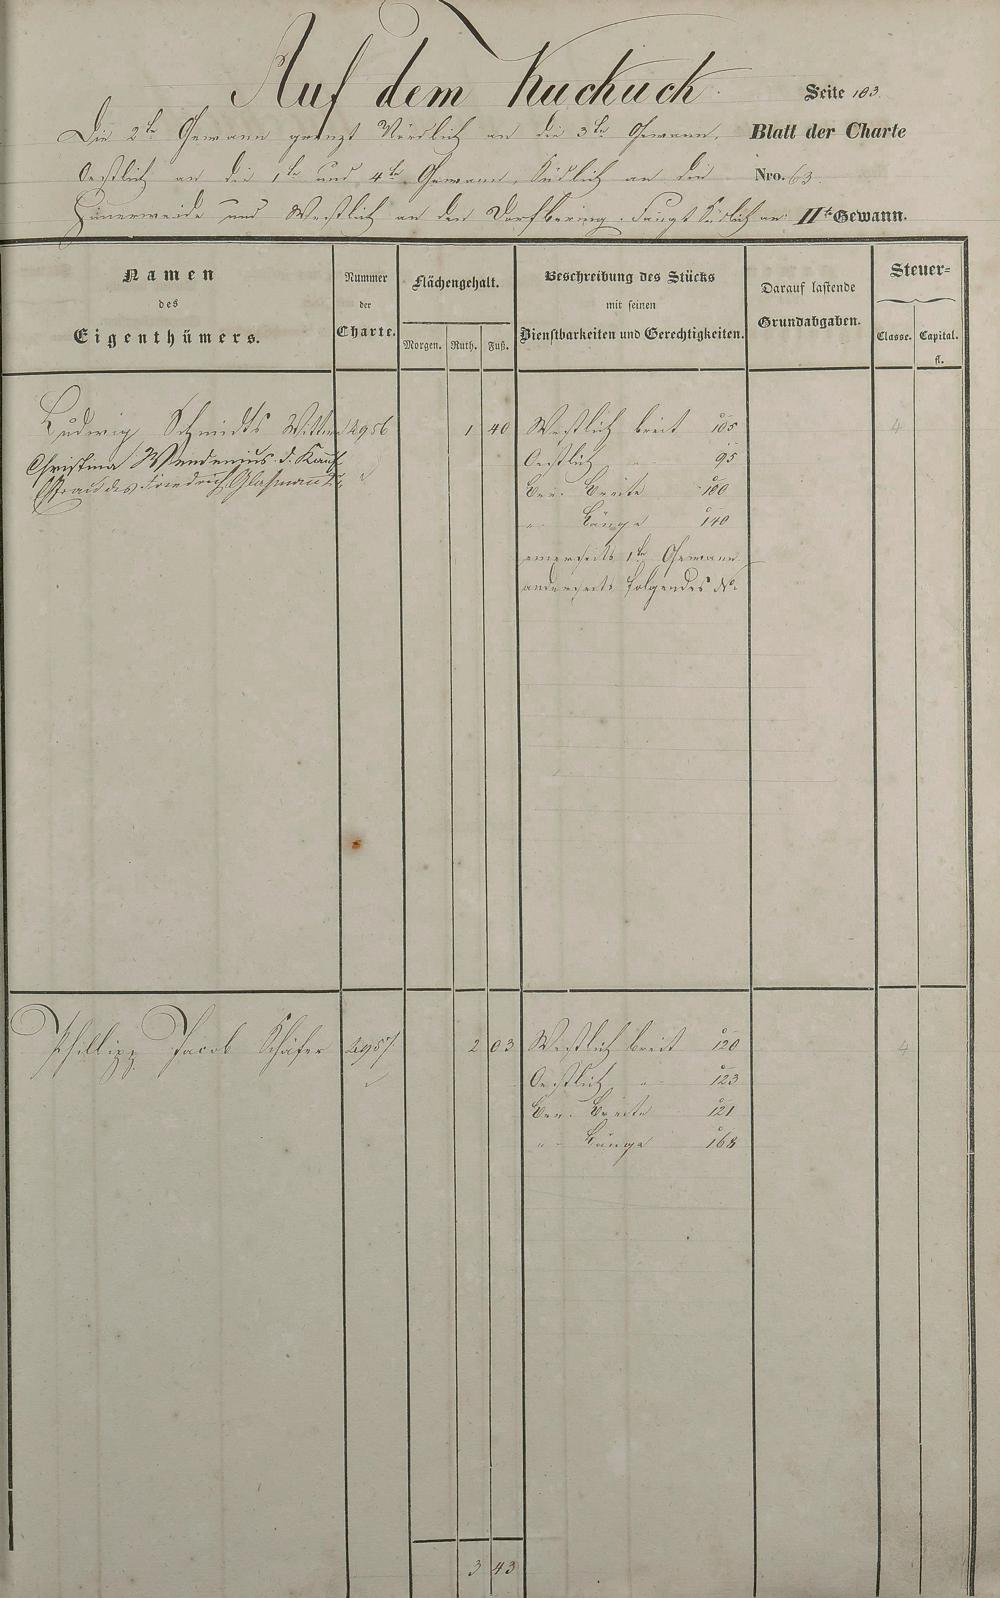 Auf dem Kuckuck
Seite 103.
Die 2te Gewann grenzt Nördlich an die 3te Gewann,
Blatt der Charte
Oestlich an die 1te und 4te Gewann, Südlich an die
Nro. 63.
Hünerweide und Westlich an den Dorfbering. Fängt Südlich an:
IIte Gewann.
Namen
des
Eigenthümers.
Nummer
der
Charte.
Flächengehalt.
Morgen. Ruth. Fuß.
Beschreibung des Stücks
mit seinen
Dienstbarkeiten und Gerechtigkeiten.
Darauf lastende
Grundabgaben.
Steuer-
Classe. Capital.
fl.
Ludwig Schmidts Wittwe 2956 1 40 Westlich breit 105 4
Christina Wendenius d. Kauf
Oestlich " 95
Frau des Friedrich Glaßmann
Ber. Breite 100
" Länge 140
einerseits 1te Gewann
anderseits folgendes No.
Phillipp Jacob Schäfer 2957 2 03 Westlich breit 120 4
Oestlich " 123
Ber. Breite 121
" Länge 168
3 43